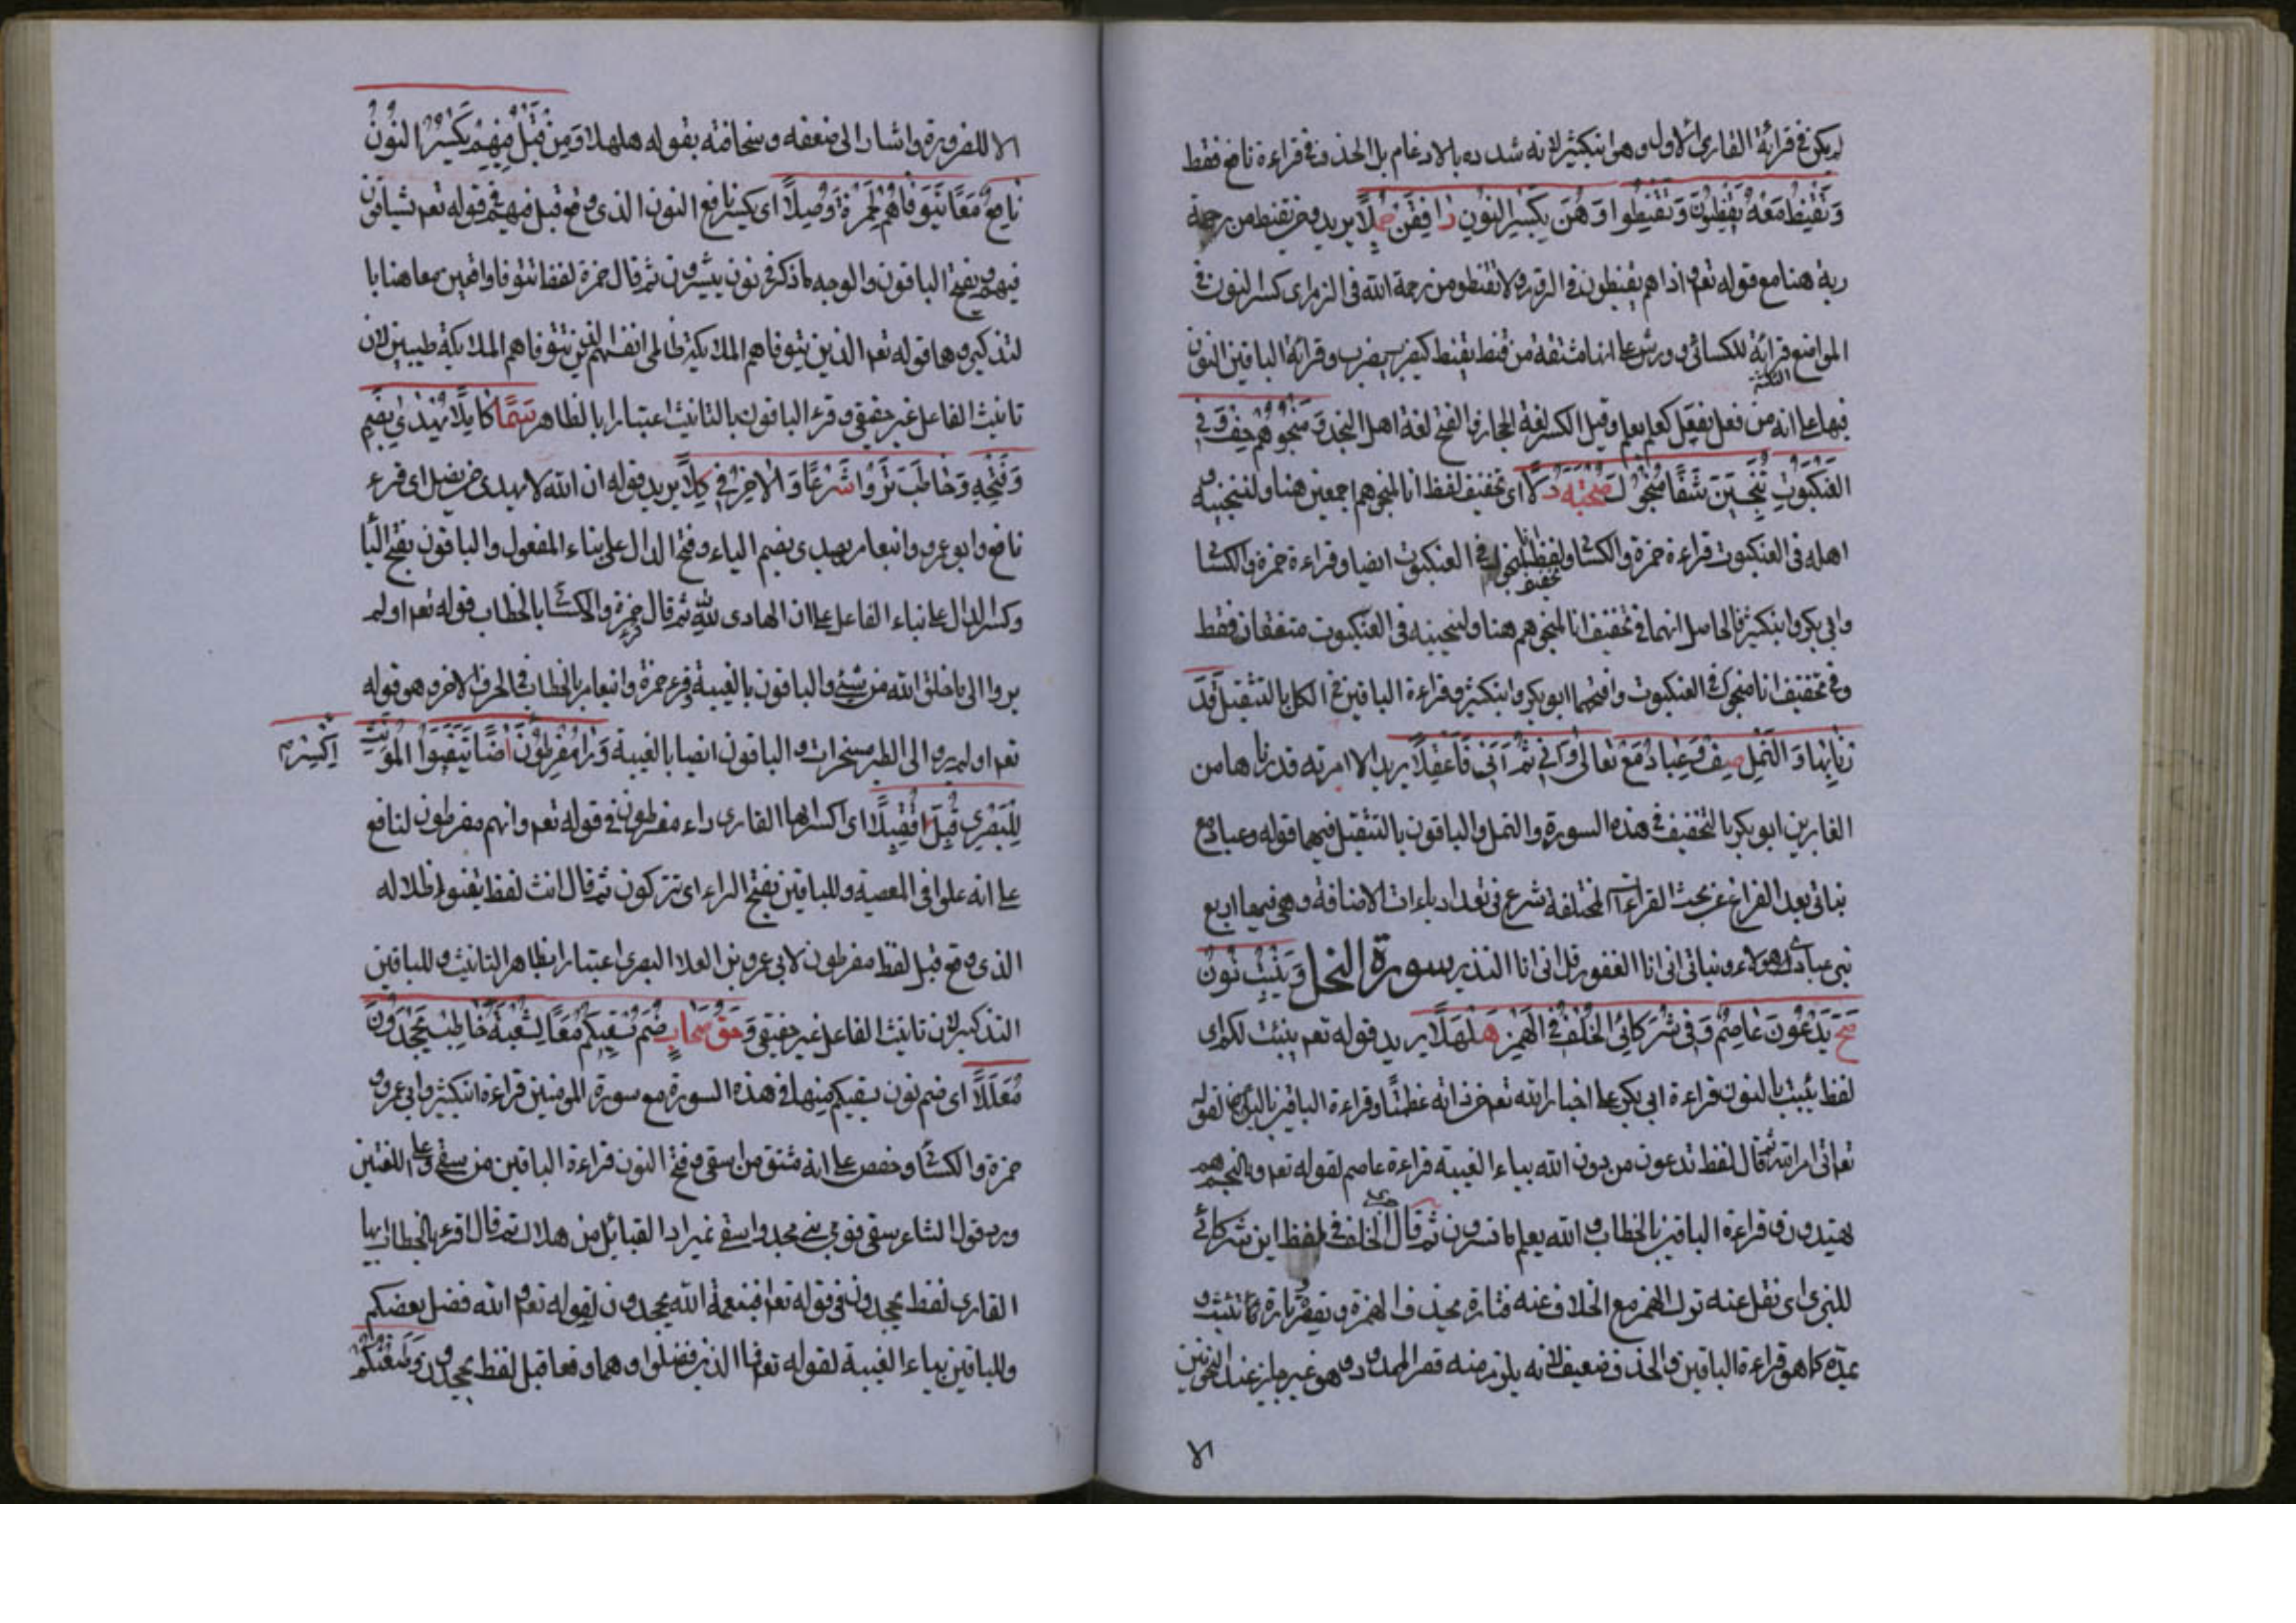 لم يكن في قرائة القاري الاول وهو ابنكثير لانه شدده بالادغام بل الحذف في قراءة نافع فقط
وَتَقْنِطُ مَعْهُ يَقْنِطُونَ وَتَقْنَطُوا وَهُنَّ بِكَسْرِ النُّونِ رَافَقْنَ حُمِّلاً يريد ومن تقنط من رحمة
ربه هنا مع قوله تعم اذا هم يقنطون في الروم ولا تقنطو من رحمة الله في الزمر اي كسر النون في
المواضع الثلثة قرائة للكسائي و علي انها مشتقة من قنط يقنط كيضرب وقرائة الباقين النون
فيها علي انه من فعل يفعل كعلم يعلم وقيل الكسر لغة الحجاز والفتح لغة اهل النجد وَمُنْجُوهُمْ خِفٌّ وَفِي
العَنْكَبُوتِ تُنْجِيَنَّ شَفَا مُنْجُوكَ صُحْبَتُهُ دَلاَ اي تخفيف لفظ انا لمنجوهم اجمعين هنا ولننجينه و
اهله في العنكبوت قراءة حمزة والكسا ولفظ تخفيف انا منجوك في العنكبوت ايضا وقراءة حمزة والكسا
وابي بكر وابنكثير فالحاصل انهما في تخفيف انا لمنجوهم هنا ولننجينه في العنكبوت متفقان فقط
وفي تخفيف انا منجوك في العنكبوت وافقهما ابو بكر وابنكثير وقراءة الباقين في الكل بالتثقيل قَدَّ
رْنَا بِهَا وَالنَّمْلِ صِفْ وَعِبَادِ مَعْ بَنَاتِي وَأَنِّي ثُمَّ اَنِّي فَاعْقِلاَ يريد الا امرته قدرنا ها من
الغابرين ابو بكر بالتخفيف في هذه السورة والنمل والباقون بالتثقيل فيهما قوله وعباد مع
بناتي بعد الفراغ عن بحث القراءات المختلفة شرع في تعداد ياءات الاضافة وهي فيها اربع
نبي عبادي وهولاء بناتي اني انا الغفور قل اني انا النذير سورة النحل وَيُنْبِتُ نُونٌ
صَحَّ يَدْعُونَ عَاصِمٌ وَفِي شُرَكَائِي الخُلْفُ فِي الهَمْزِ هَلْهَلاَ يريد قوله تعم ينبت لكم اي
لفظ ينبت بالنون قراءة ابي بكر علي اخبار الله تعم عن ذاته عظمتا وقراءة الباقين بالياء لقوله
تعم اتي امر الله ثم قال لفظ تدعون من دون الله بياء الغيبة قراءة عاصم لقوله تعم وبالنجم هم
يهتدون وقراءة الباقين بالخطاب والله يعلم ما تسرون ثم قال الخلف في لفظ اين شركائي
للبزي اي نقل عنه ترك الهمز مع الخلاف عنه فتارة يحذف الهمزة و تارة كما تثبت و
عدّه كما هو قراءة الباقين والحذف ضعيف لانه يلزم منه قصر الممدود وهو غير جايز عند النحويين
٨١
الا للضرورة واشار الي ضعفه وسخافته بقوله هلهلا وَمِنْ قَبْلُ فِيهِمْ يَكْسِرُ النُّونَ
نَافِعٌ مَعًا يَتَوَفَّاهُمْ لِحَمْزَةَ وُصِّلاَ اي يكسر نافع النون الذي وقع قبل فيهم في قوله تعم تشاقون
فيهم ويفتح الباقون والوجه ما ذكر في نون تبشرون ثم قال حمزة لفظا تتوفا واقعين معا هنا با
لتذكير وهما قوله تعم الذين يتوفاهم الملائكة ظالمي انفسهم الذين تتوفاهم الملائكة طيبين لان
تانيث الفاعل غير حقيقي وقرء الباقون بالتانيث اعتبارا بالظاهر سَمَا كَامِلاً يَهْدِي بِضَمٍّ
وَفَتْحِهِ وَخَاطَبَ تَرَوْا شَرْعًا وَالآخِرُ فِي كِلاَ يريد قوله ان الله لا يهدي من يضل اي قرء
نافع وابو عمرو وابنعامر يهدي بضم الياء وفتح الدال علي بناء المفعول والباقون بفتح اليا
وكسر الدال علي بناء الفاعل علي ان الهادي لله ثم قال قرء حمزة والكسا بالخطاب قوله تعم اولم
يروا الي ما خلق الله من شيء والباقون بالغيبة وقرء حمزة وابنعامر بالخطاب في الحرف الاخر وهو قوله
تعم اولم يروا الي الطير مسخرات والباقون ايضا بالغيبة وَرَا مُفْرِطُونَ اكْسِرْ اضًا يَتَفَيَّؤُا المُؤَنَّثُ
لِلْبَصْرِي قَبْلُ تُقُبِّلاَ اي اكسر ايها القاري راء مفرطون في قوله تعم وانهم مفرطون لنافع
علي انه علوا في المعصية وللباقين بفتح الراء اي تتركون ثم قال انث لفظ يتفيؤا ظلاله
الذي وقع قبل لفظ مفرطون لابي عمرو بن العلا البصري اعتبارا بظاهر التانيث وللباقين
التذكير لان تانيث الفاعل غير حقيقي وَحَقُّ صِحَابٍ ضَمَّ نُسْقِيكُمُ مَعًا لِشُعْبَةَ خَاطِبْ يَجْحَدُونَ
مُعَلَّلاَ اي ضم نون نسقيكم منها في هذه السورة مع سورة المومنين قراءة ابنكثير وابي عمرو و
حمزة والكسا وحفص علي انه مشتق من اسقي وفتح النون قراءة الباقين من سقي وعلي اللغتين
ورد قول الشاعر سقي قومي بني مجد واسقي نميرا والقبائل من هلال ثم قال اقرء بالخطاب ايها
القاري لفظ يجحدون في قوله تعم افبنعمة الله يجحدون لقوله تعم والله فضل بعضكم
وللباقين بياء الغيبة لقوله تعم فما الذين فضلوا وهما وقعا قبل لفظ يجحدون وَظَعْنِكُمْ